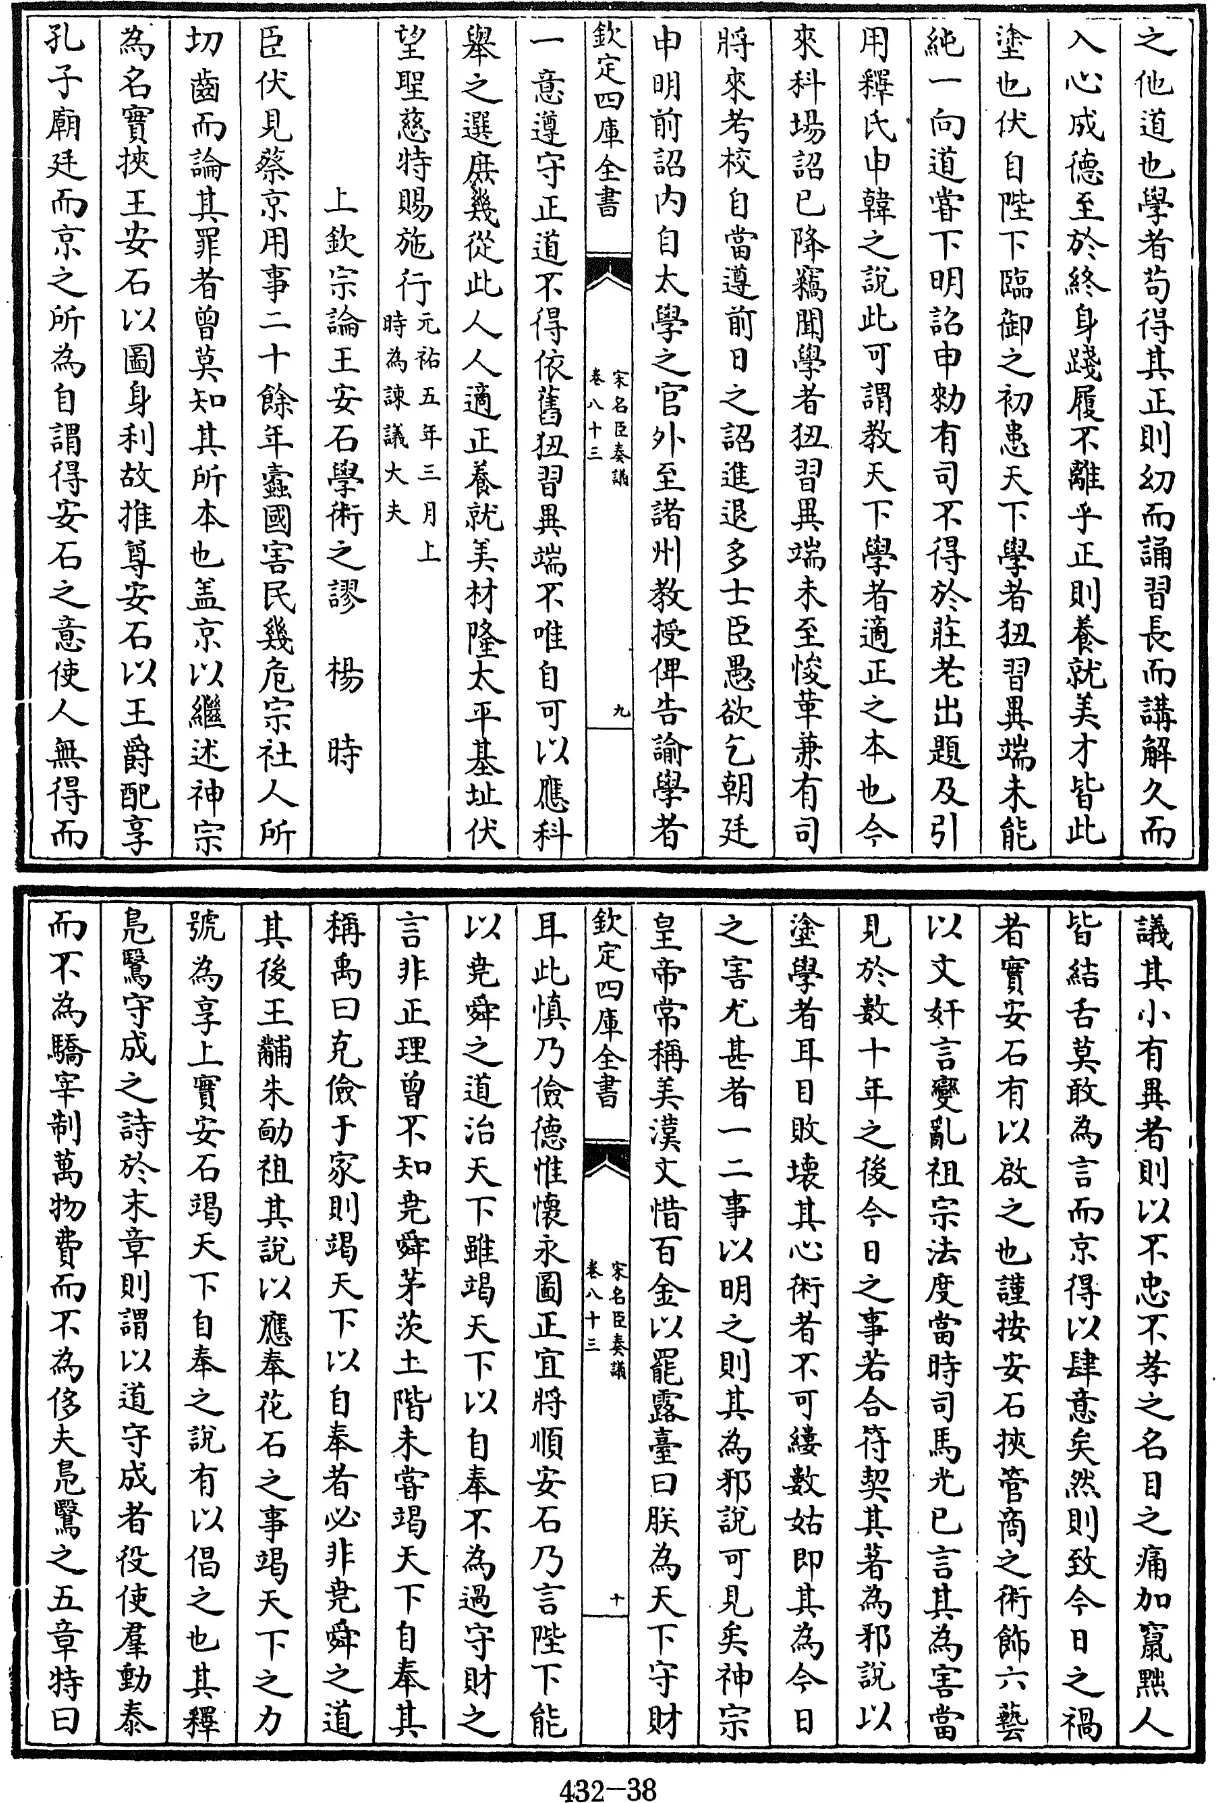 之他道也學者苟得其正則幼而誦習長而講解久而
入心成德至於終身踐履不離乎正則養就美才皆此
塗也伏自陛下臨御之初患天下學者狃習異端未能
純一向道嘗下明詔申勑有司不得於莊老出題及引
用釋氏申韓之說此可謂教天下學者適正之本也今
來科場詔已降竊聞學者狃習異端未至悛革兼有司
將來考校自當遵前日之詔進退多士臣愚欲乞朝廷
申明前詔内自太學之官外至諸州教授俾告諭學者
欽定四庫全書
宋名臣奏議
卷八十三
九
一意遵守正道不得依舊狃習異端不唯自可以應科
舉之選庶幾從此人人適正養就美材隆太平基址伏
望聖慈特賜施行元祐五年三月上
時為諫議大夫
上欽宗論王安石學術之謬 楊時
臣伏見蔡京用事二十餘年蠹國害民幾危宗社人所
切齒而論其罪者曾莫知其所本也盖京以繼述神宗
為名實挾王安石以圖身利故推尊安石以王爵配享
孔子廟廷而京之所為自謂得安石之意使人無得而
議其小有異者則以不忠不孝之名目之痛加竄黜人
皆結舌莫敢為言而京得以肆意矣然則致今日之禍
者實安石有以啟之也謹按安石挾管商之術飾六藝
以文奸言變亂祖宗法度當時司馬光已言其為害當
見於數十年之後今日之事若合符契其著為邪說以
塗學者耳目敗壞其心術者不可縷數姑即其為今日
之害尤甚者一二事以明之則其為邪說可見矣神宗
皇帝常稱美漢文惜百金以罷露臺曰朕為天下守財
欽定四庫全書
宋名臣奏議
卷八十三
十
耳此慎乃儉德惟懷永圖正宜將順安石乃言陛下能
以堯舜之道治天下雖竭天下以自奉不為過守財之
言非正理曾不知堯舜茅茨土階未嘗竭天下自奉其
稱禹曰克儉于家則竭天下以自奉者必非堯舜之道
其後王黼朱勔祖其說以應奉花石之事竭天下之力
號為享上實安石竭天下自奉之說有以倡之也其釋
鳧鷖守成之詩於末章則謂以道守成者役使羣動泰
而不為驕宰制萬物費而不為侈夫鳧鷖之五章特曰
432-38